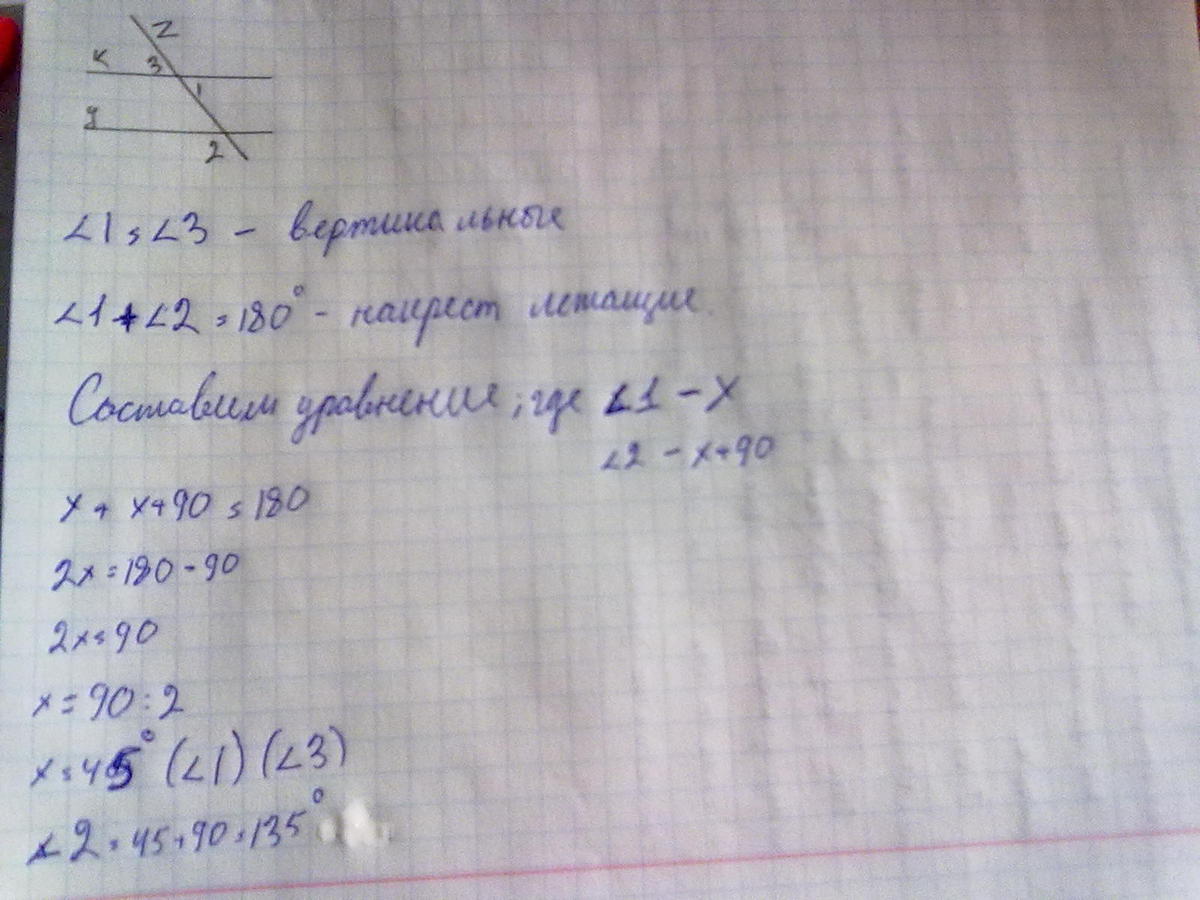 z
к 3
1
y
2
∠1 = ∠3 - вертикальные
∠1 + ∠2 = 180° - накрест лежащие.
Составим уравнение, где ∠1 - x
∠2 - x+90
x + x+90 = 180
2x = 180 - 90
2x = 90
x = 90 : 2
x = 45° (∠1) (∠3)
∠2 = 45+90 = 135°